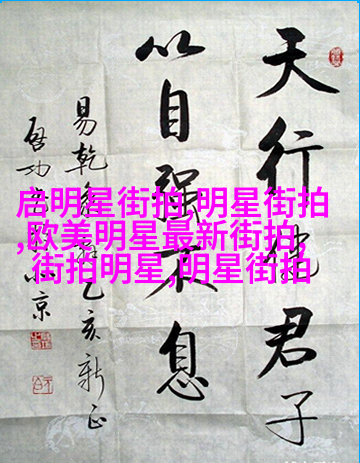 天行健君子
以自强不息
易乾象乙亥新正
啟功京
启明星街拍,明星街拍
,欧美明星最新街拍,
街拍明星,明星街拍